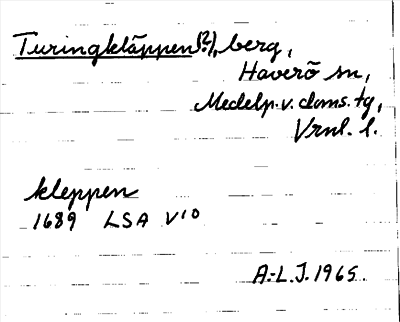 Turingkläppen(?), berg,
Haverö sn,
Medelp. v. doms. tg,
Vrnl. l.
kleppen
1689 LSA V10
A.-L.J. 1965.